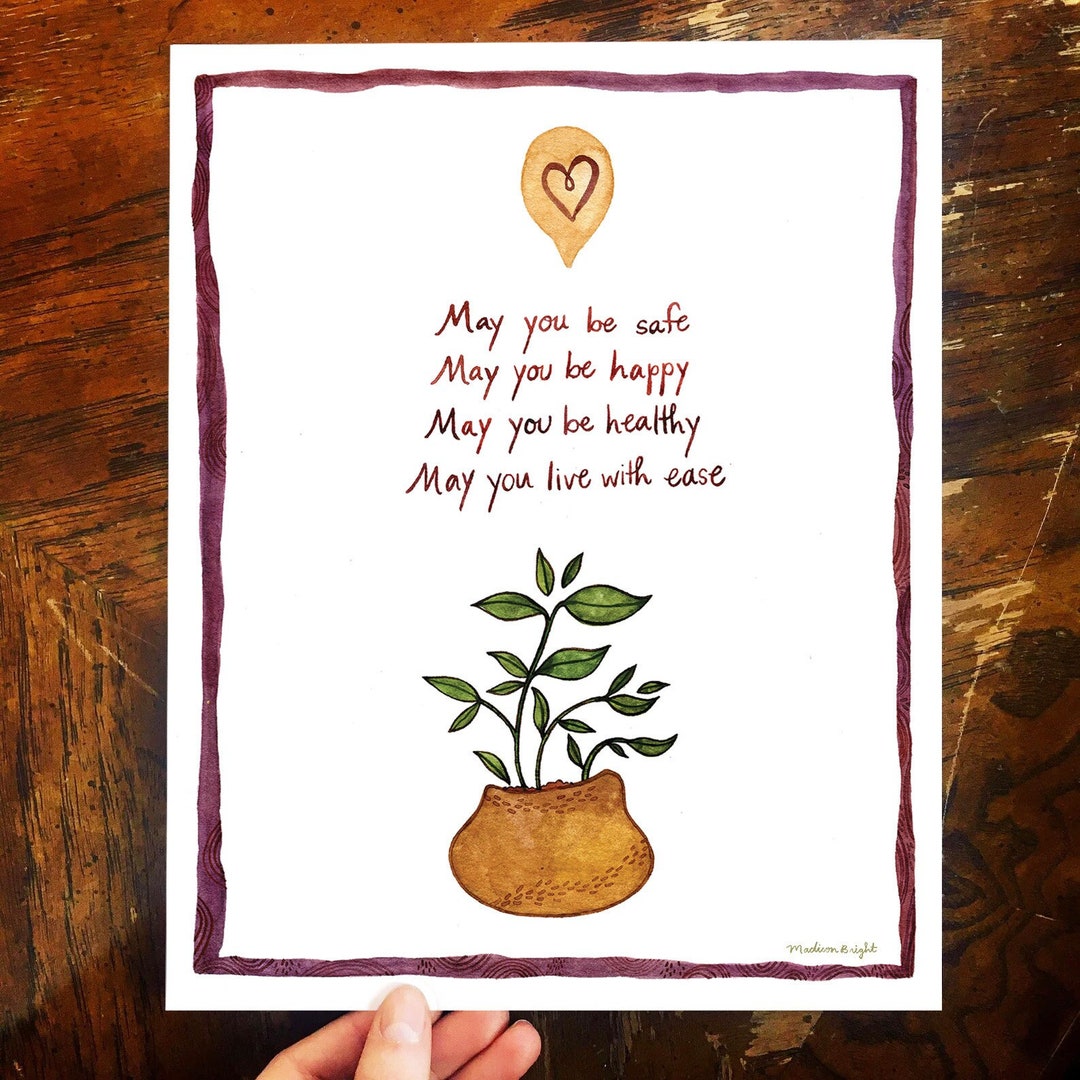 May you be safe
May you be happy
May you be healthy
May you live with ease
Madison Bright